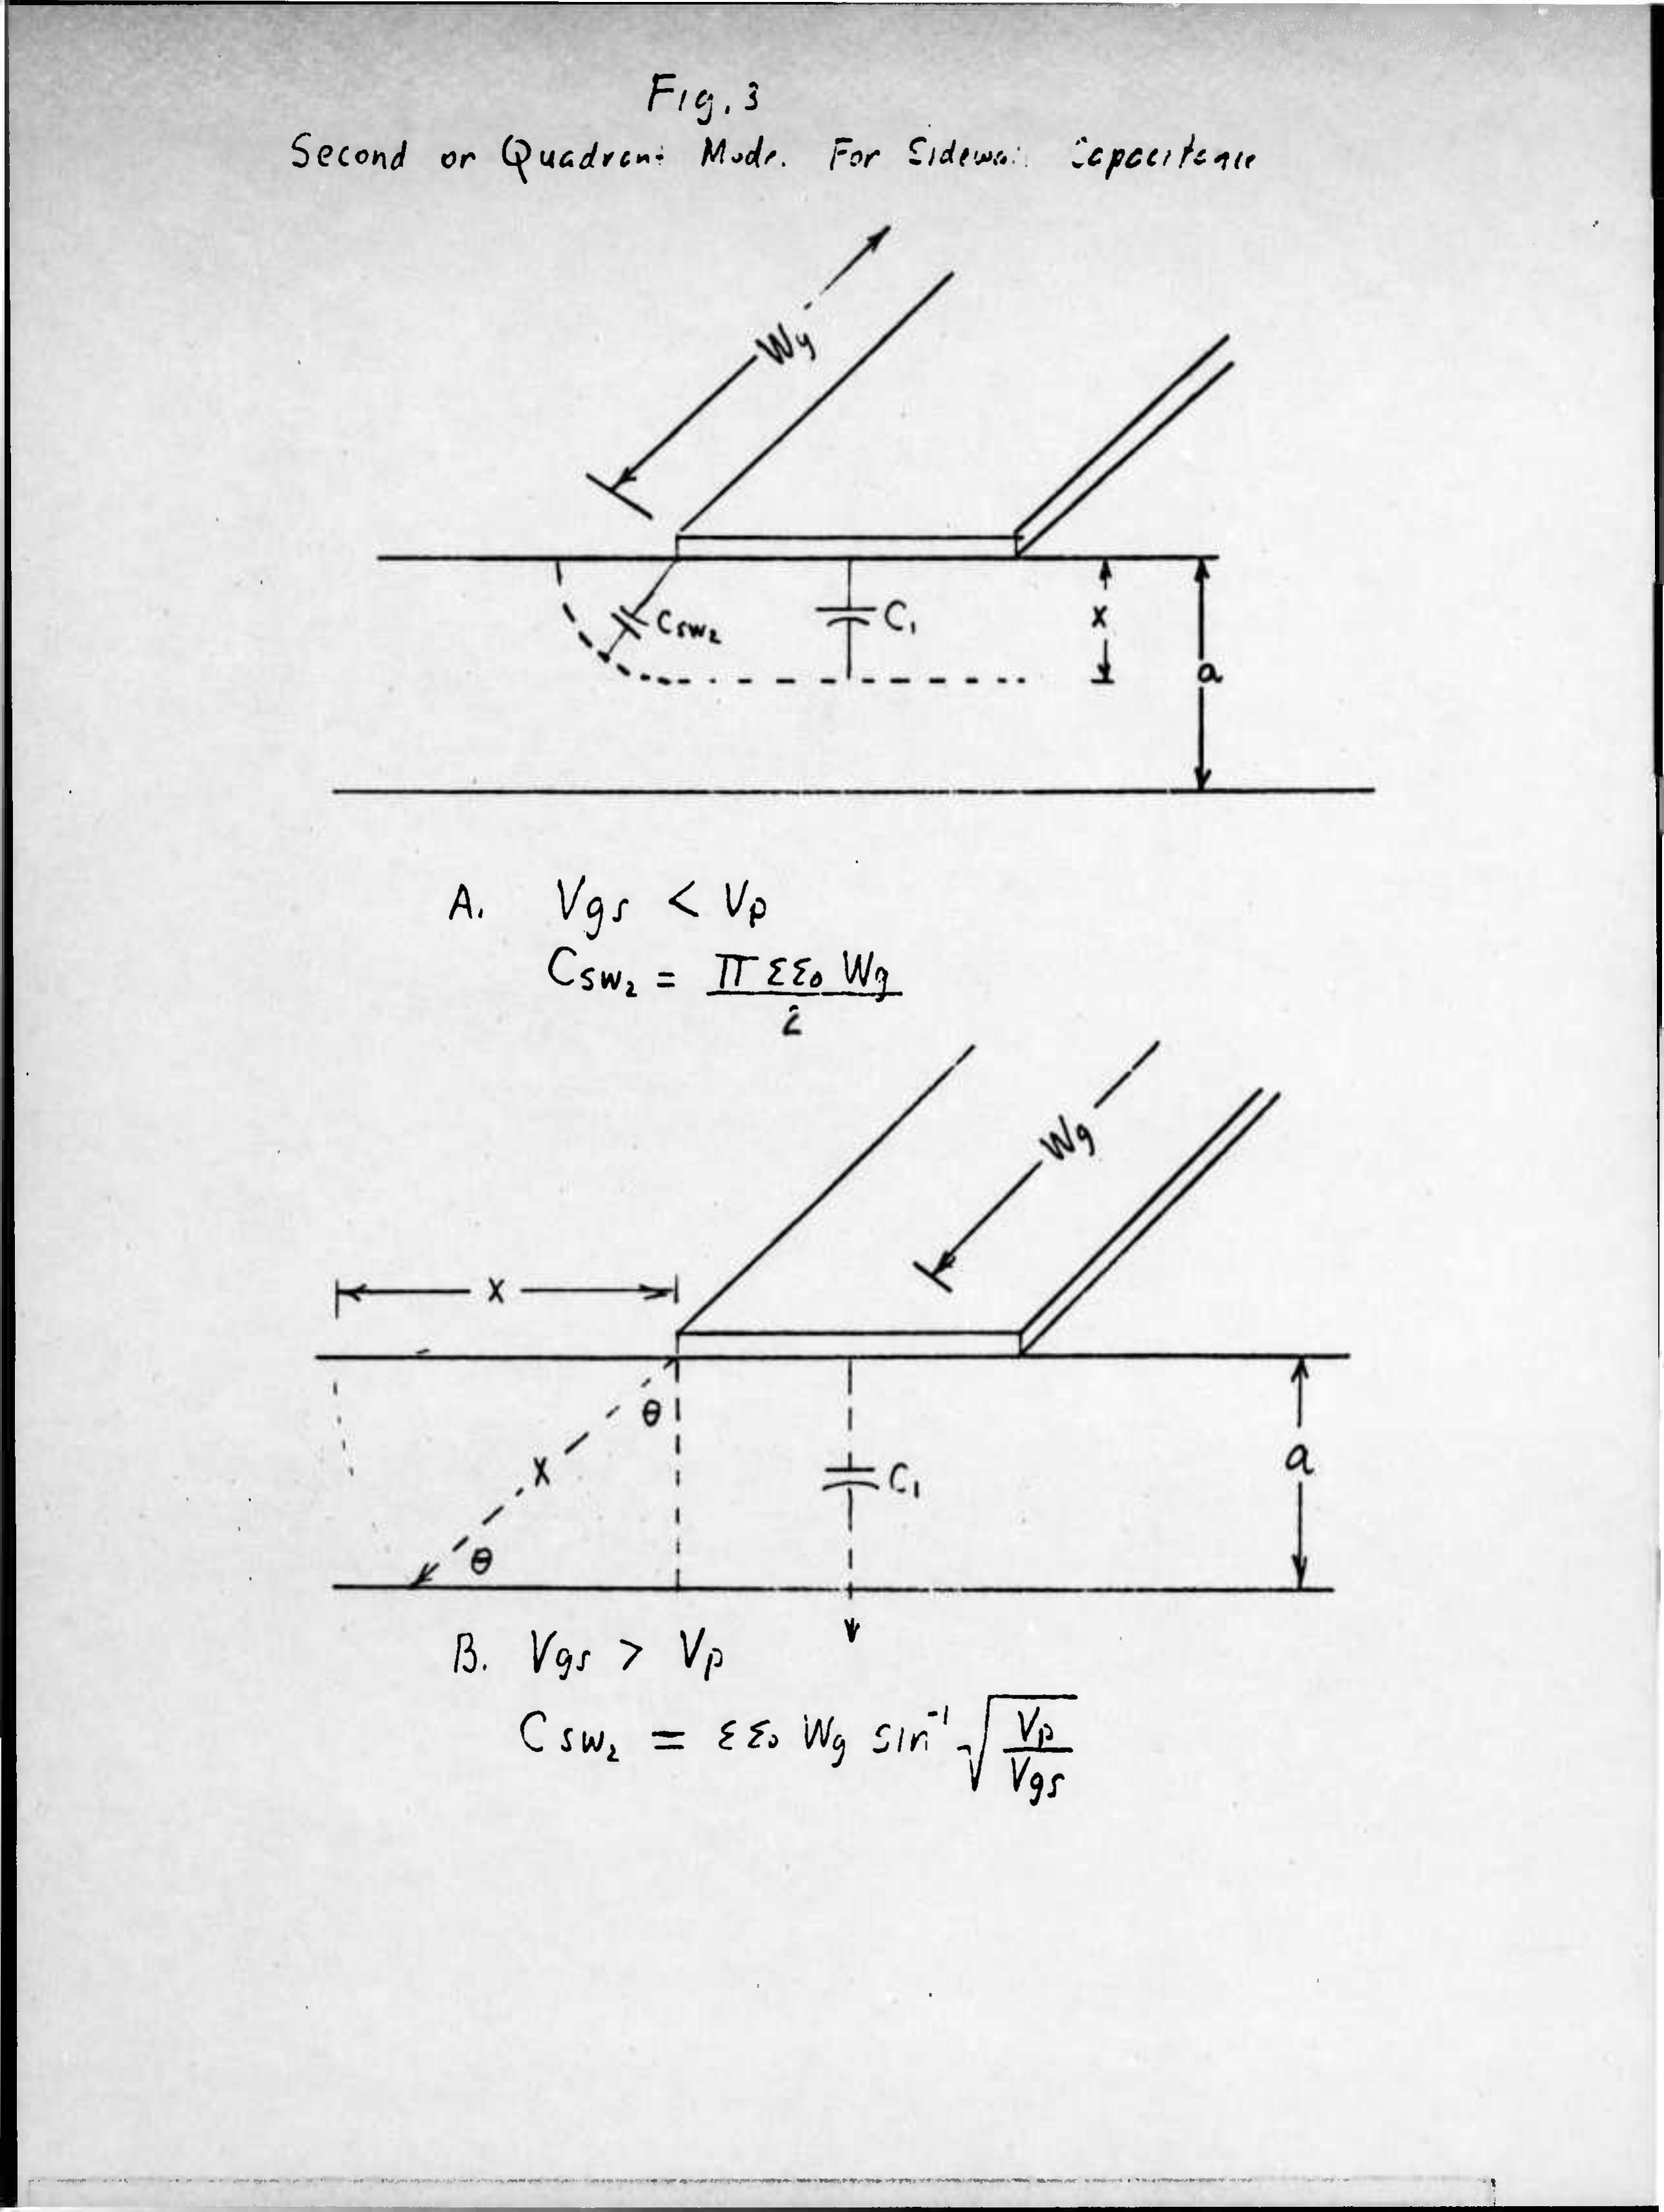 Fig. 3
Second or Quadrant Mode. For Sidewal. Capacitance
Wg
Csw₂
C₁
x
a
A. Vgs < Vp
Csw₂ = π εε₀ Wg / 2
Wg
x
θ
x
C₁
a
θ
B. Vgs > Vp
Csw₂ = εε₀ Wg sin⁻¹ √(Vp / Vgs)